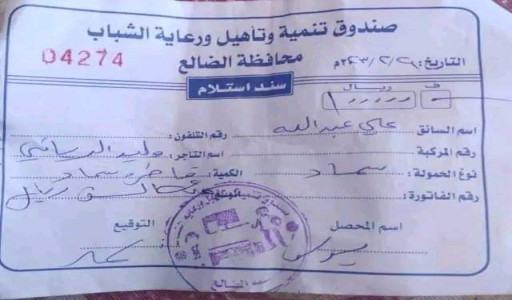 صندوق تنمية وتأهيل ورعاية الشباب
محافظة الضالع
04274
التاريخ: ٢٠٢٣/٢/٢م
سند استلام
ف ريال
اسم السائق علي عبدالله رقم التلفون:
رقم المركبة اسم التاجر: وليد
نوع الحمولة: سماد الكمية: قاطره سماد
رقم الفاتورة: ريال
اسم المحصل التوقيع